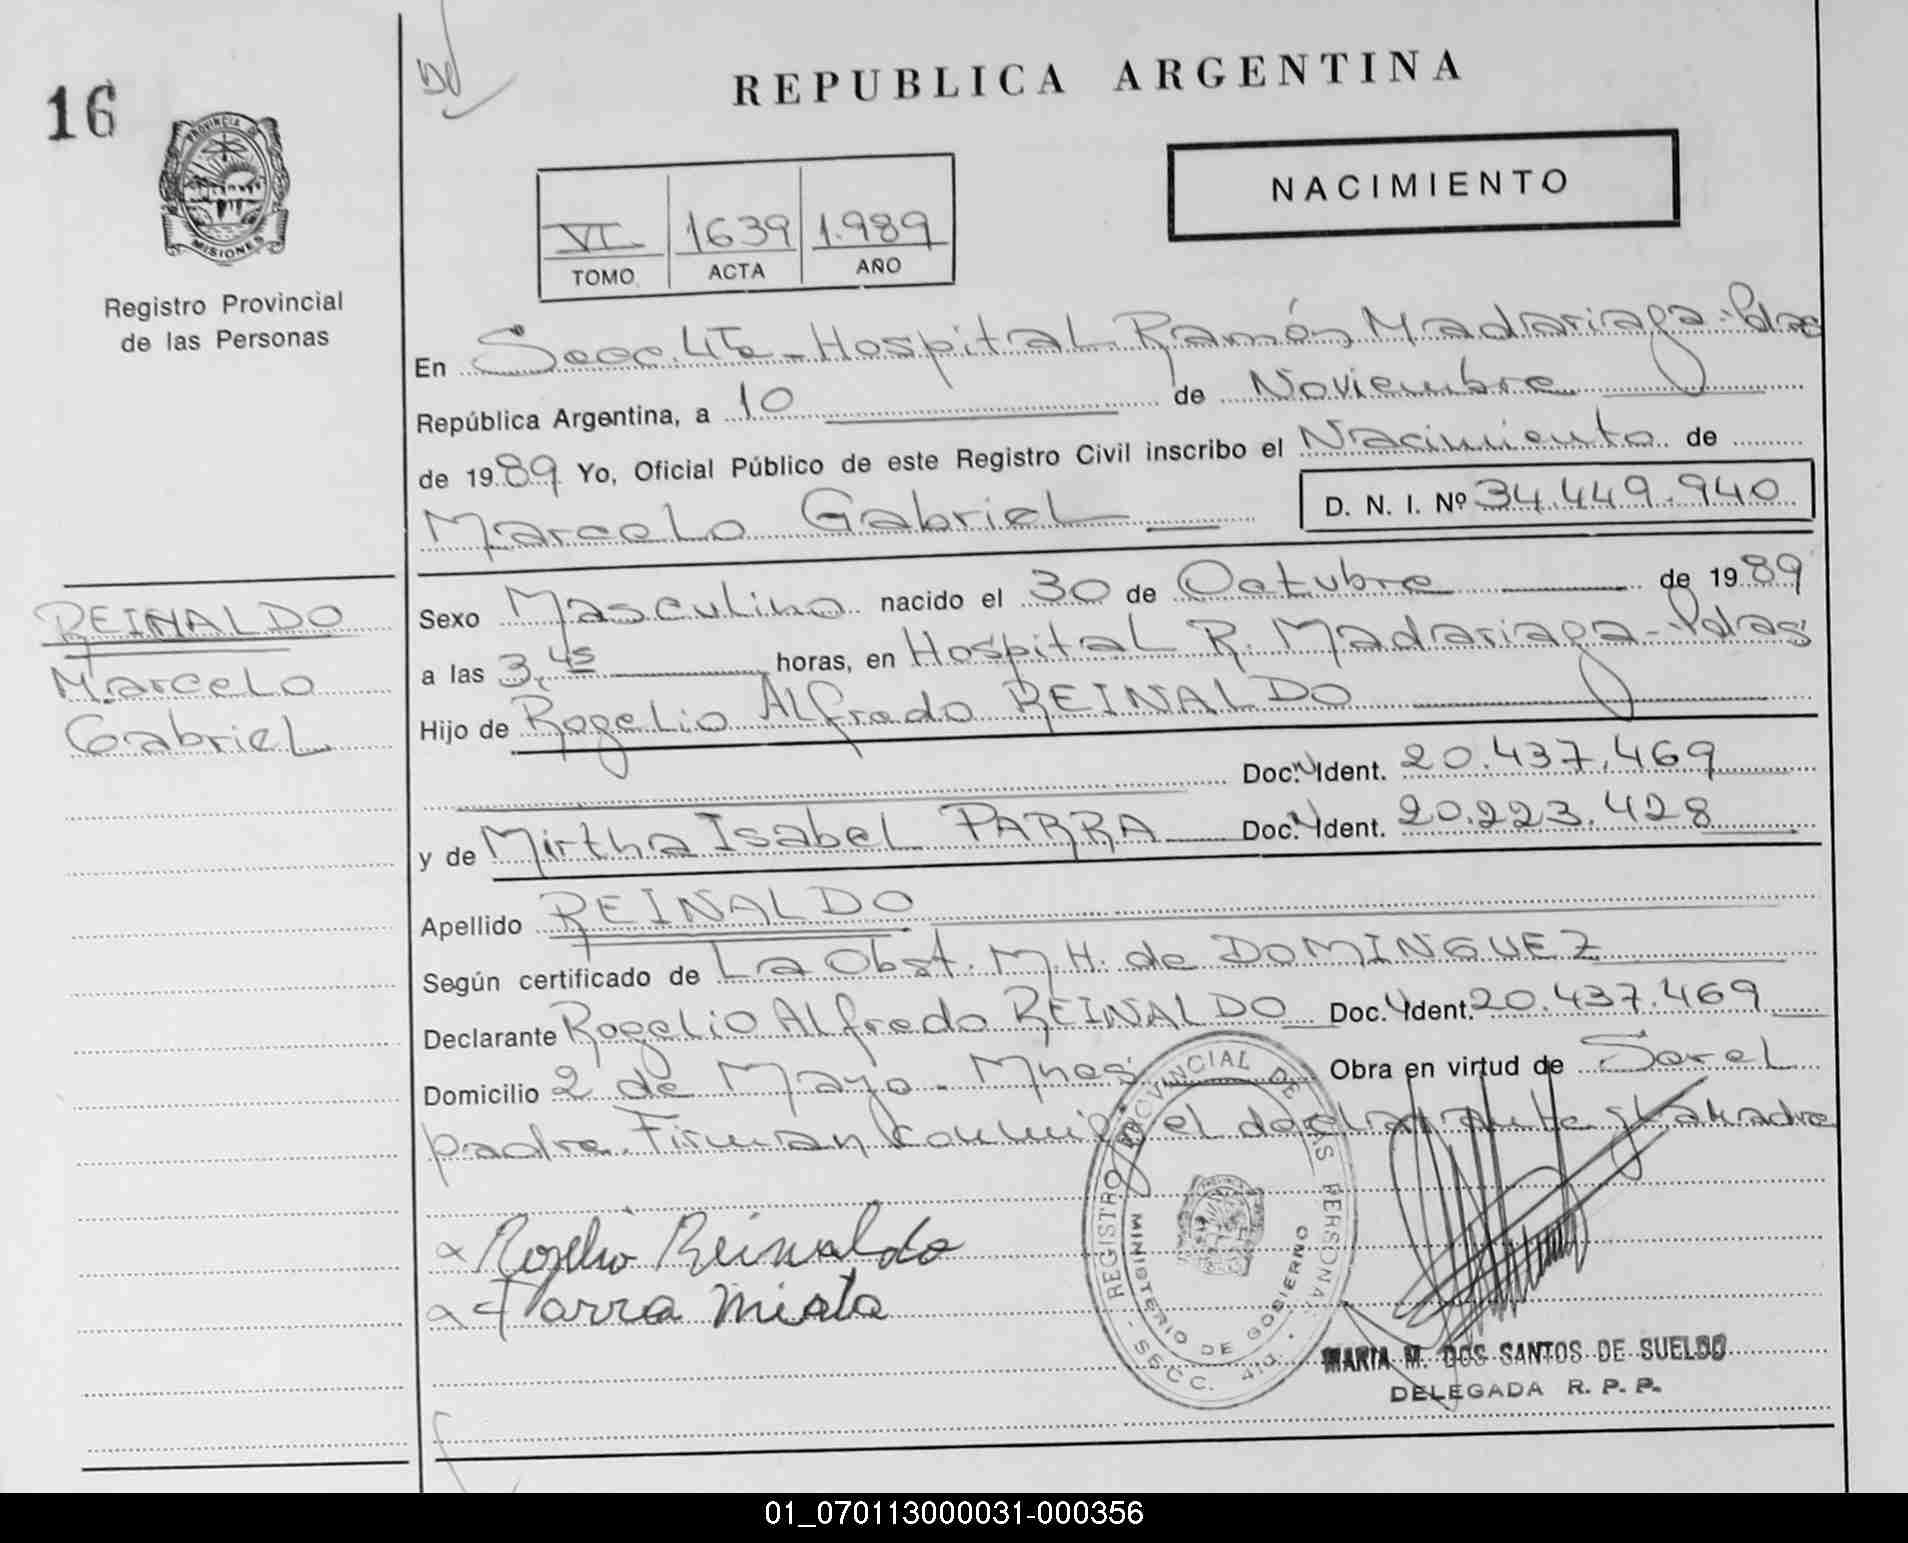 16
REPUBLICA ARGENTINA
PROVINCIA DE
MISIONES
Registro Provincial
de las Personas
NACIMIENTO
VI 1639 1.989
TOMO ACTA AÑO
En Secc. 4ta - Hospital Ramón Madariaga - Pdas
República Argentina, a 10 de Noviembre
de 1989 Yo, Oficial Público de este Registro Civil inscribo el Nacimiento de
Marcelo Gabriel D. N. I. Nº 34.449.940
REINALDO
Marcelo
Gabriel
Sexo Masculino nacido el 30 de Octubre de 1989
a las 3,45 horas, en Hospital R. Madariaga - Pdas
Hijo de Rogelio Alfredo REINALDO
Doc. Ident. 20.437.469
y de Mirtha Isabel PARRA Doc. Ident. 20.223.428
Apellido REINALDO
Según certificado de La Obst. M.H. de DOMINGUEZ
Declarante Rogelio Alfredo REINALDO Doc. Ident. 20.437.469
Domicilio 2 de Mayo - Mnes Obra en virtud de Ser el
padre. Firman conmigo el declarante y la madre
Rogelio Reinaldo
Parra Mirta
REGISTRO PROVINCIAL DE LAS PERSONAS
MINISTERIO DE GOBIERNO
- SECC. 4ta. -
MARIA M. DOS SANTOS DE SUELDO
DELEGADA R. P. P.
01_070113000031-000356